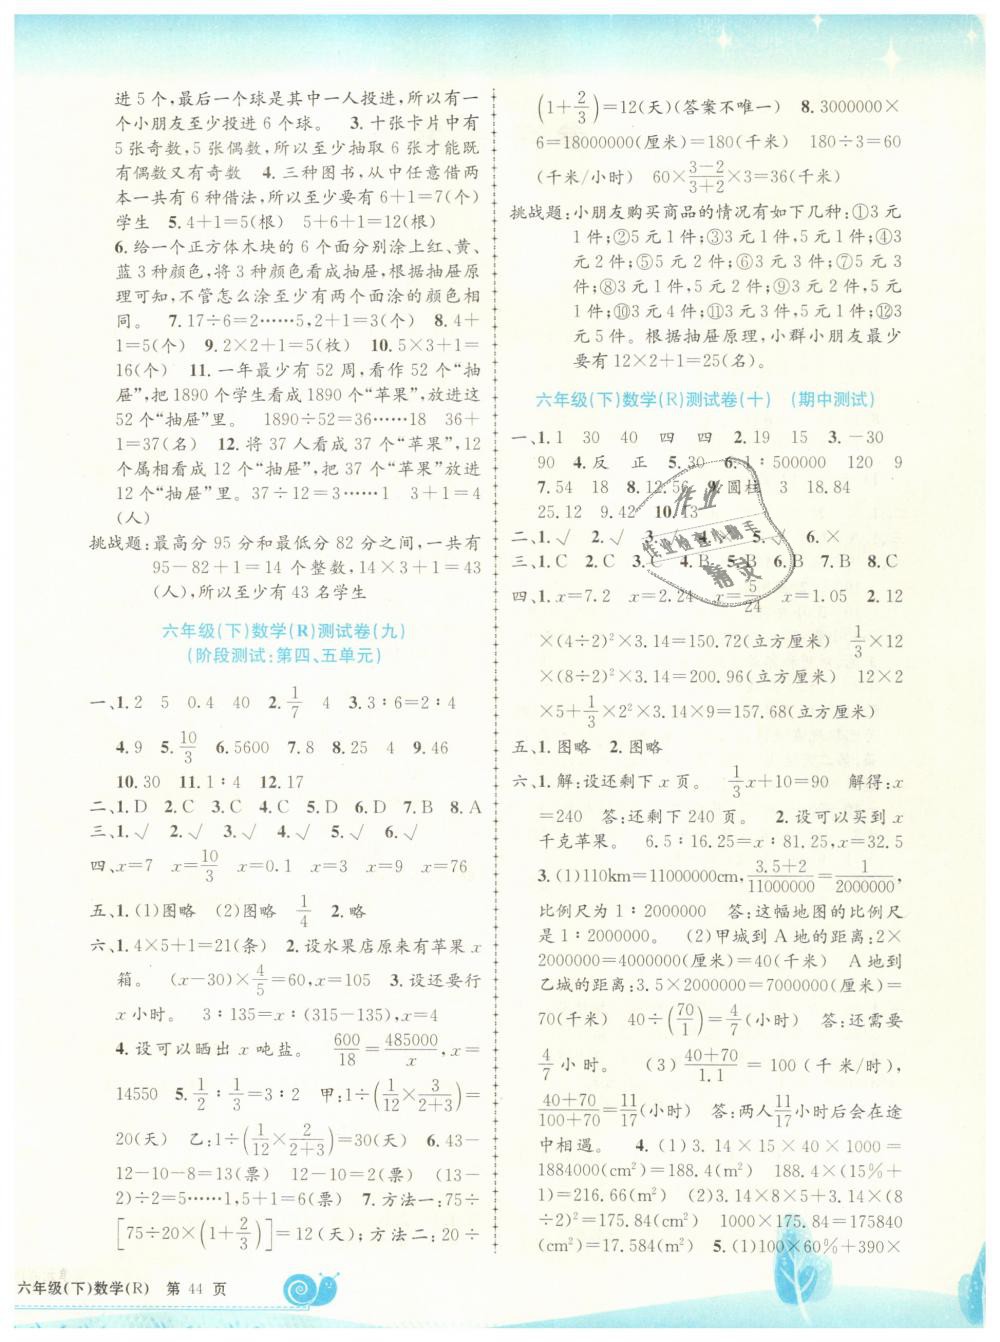 进5个,最后一个球是其中一人投进,所以有一
个小朋友至少投进6个球。 3.十张卡片中有
5张奇数,5张偶数,所以至少抽取6张才能既
有偶数又有奇数 4.三种图书,从中任意借两
本一共有6种借法,所以至少要有6+1=7(个)
学生 5.4+1=5(根) 5+6+1=12(根)
6.给一个正方体木块的6个面分别涂上红、黄、
蓝3种颜色,将3种颜色看成抽屉,根据抽屉原
理可知,不管怎么涂至少有两个面涂的颜色相
同。 7.17÷6=2……5,2+1=3(个) 8.4+
1=5(个) 9.2×2+1=5(枚) 10.5×3+1=
16(个) 11.一年最少有52周,看作52个“抽
屉”,把1890个学生看成1890个“苹果”,放进这
52个“抽屉”里。 1890÷52=36……18 36+
1=37(名) 12.将37人看成37个“苹果”,12
个属相看成12个“抽屉”,把37个“苹果”放进
12个“抽屉”里。37÷12=3……1 3+1=4
(人)
挑战题:最高分95分和最低分82分之间,一共有
95-82+1=14个整数,14×3+1=43
(人),所以至少有43名学生
六年级(下)数学(R)测试卷(九)
(阶段测试:第四、五单元)
一、1.2 5 0.4 40 2.1/7 4 3.3∶6=2∶4
4.9 5.10/3 6.5600 7.8 8.25 4 9.46
10.30 11.1∶4 12.17
二、1.D 2.C 3.C 4.C 5.D 6.D 7.B 8.A
三、1.√ 2.√ 3.√ 4.√ 5.√ 6.√
四、x=7 x=10/3 x=0.1 x=3 x=9 x=76
五、1.(1)图略 (2)图略 1/4 2.略
六、1.4×5+1=21(条) 2.设水果店原来有苹果x
箱。 (x-30)×4/5=60,x=105 3.设还要行
x小时。 3∶135=x∶(315-135),x=4
4.设可以晒出x吨盐。 600/18=485000/x,x=
14550 5.1/2∶1/3=3∶2 甲:1÷(1/12×3/(2+3))=
20(天) 乙:1÷(1/12×2/(2+3))=30(天) 6.43-
12-10-8=13(票) 12-10=2(票) (13-
2)÷2=5……1,5+1=6(票) 7.方法一:75÷
[75÷20×(1+2/3)]=12(天);方法二:20÷
六年级(下)数学(R) 第 44 页
(1+2/3)=12(天)(答案不唯一) 8.3000000×
6=18000000(厘米)=180(千米) 180÷3=60
(千米/小时) 60×(3-2)/(3+2)×3=36(千米)
挑战题:小朋友购买商品的情况有如下几种:①3元
1件;②5元1件;③3元1件,5元1件;④3
元2件;⑤5元2件;⑥3元3件;⑦5元3
件;⑧3元1件,5元2件;⑨3元2件,5元
1件;⑩3元4件;⑪3元3件,5元1件;⑫3
元5件。根据抽屉原理,小群小朋友最少
要有12×2+1=25(名)。
六年级(下)数学(R)测试卷(十) (期中测试)
一、1.1 30 40 四 四 2.19 15 3.-30
90 4.反 正 5.30 6.1∶500000 120 9
7.54 18 8.12.56 9.圆柱 3 18.84
25.12 9.42 10.13
二、1.√ 2.√ 3. 4. 5.√ 6.×
三、1.C 2.C 3.C 4.B 5.B 6.B 7.B 8.C
四、1.x=7.2 x=2.24 x=5/24 x=1.05 2.12
×(4÷2)²×3.14=150.72(立方厘米) 1/3×12
×(8÷2)²×3.14=200.96(立方厘米) 12×2
×5+1/3×2²×3.14×9=157.68(立方厘米)
五、1.图略 2.图略
六、1.解:设还剩下x页。 1/3x+10=90 解得:x
=240 答:还剩下240页。 2.设可以买到x
千克苹果。 6.5∶16.25=x∶81.25,x=32.5
3.(1)110km=11000000cm,(3.5+2)/11000000=1/2000000,
比例尺为1∶2000000 答:这幅地图的比例尺
是1∶2000000。 (2)甲城到A地的距离:2×
2000000=4000000(厘米)=40(千米) A地到
乙城的距离:3.5×2000000=7000000(厘米)=
70(千米) 40÷(70/1)=4/7(小时) 答:还需要
4/7小时。 (3)(40+70)/1.1=100(千米/时),
(40+70)/(100+70)=11/17(小时) 答:两人11/17小时后会在途
中相遇。 4.(1)3.14×15×40×1000=
1884000(cm²)=188.4(m²) 188.4×(15%+
1)=216.66(m²) (2)3.14×8×5+3.14×(8
÷2)²=175.84(cm²) 1000×175.84=175840
(cm²)=17.584(m²) 5.(1)100×60%+390×
作业
作业检查小助手
精灵